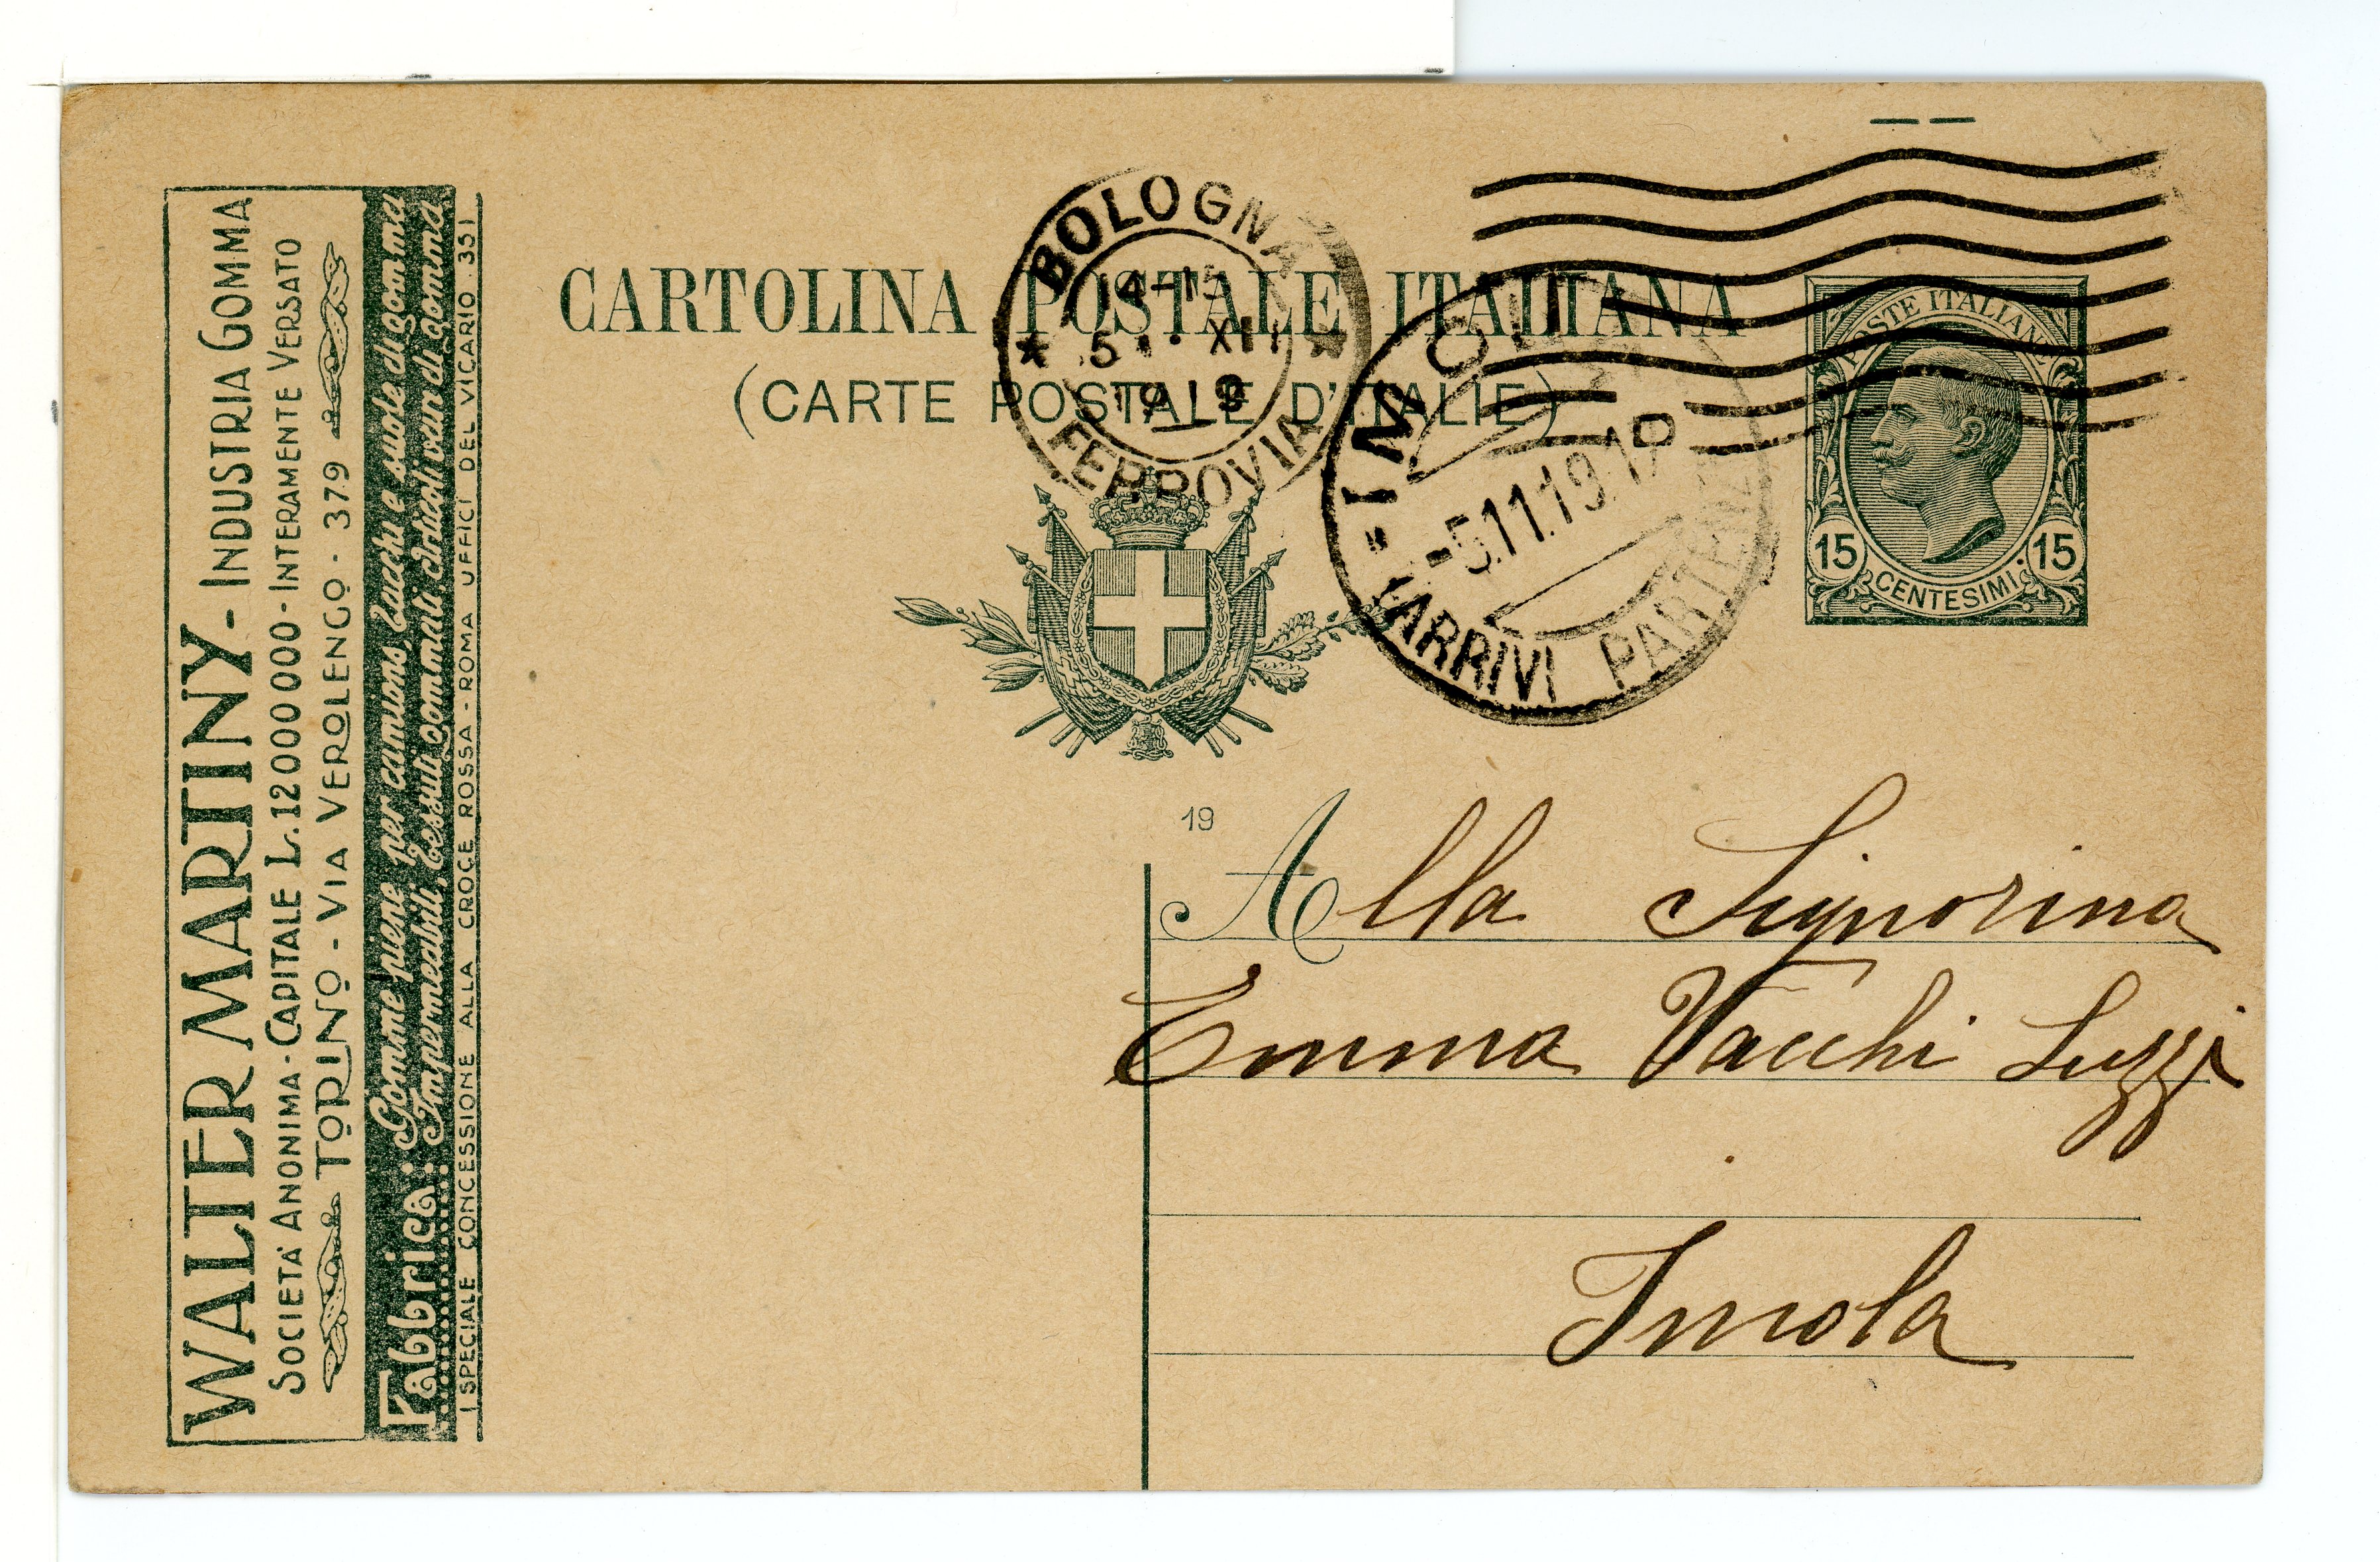 WALTER MARTINY - INDUSTRIA GOMMA
SOCIETA' ANONIMA - CAPITALE L. 12000000 - INTERAMENTE VERSATO
TORINO - VIA VEROLENGO - 379
Fabbrica: Gomme piene per camions, Tacchi e suole di gomma
Impermeabili, Tessuti gommati Articoli vari di gomma
I SPECIALE CONCESSIONE ALLA CROCE ROSSA - ROMA UFFICI DEL VICARIO 351
CARTOLINA POSTALE ITALIANA
(CARTE POSTALE D'ITALIE)
BOLOGNA
4-15
5 XII
1919
FERROVIA
IMOLA
-5.11.19.19
ARRIVI PARTENZA
POSTE ITALIANE
15 CENTESIMI 15
19
Alla Signorina
Emma Vacchi Suzzi
Imola